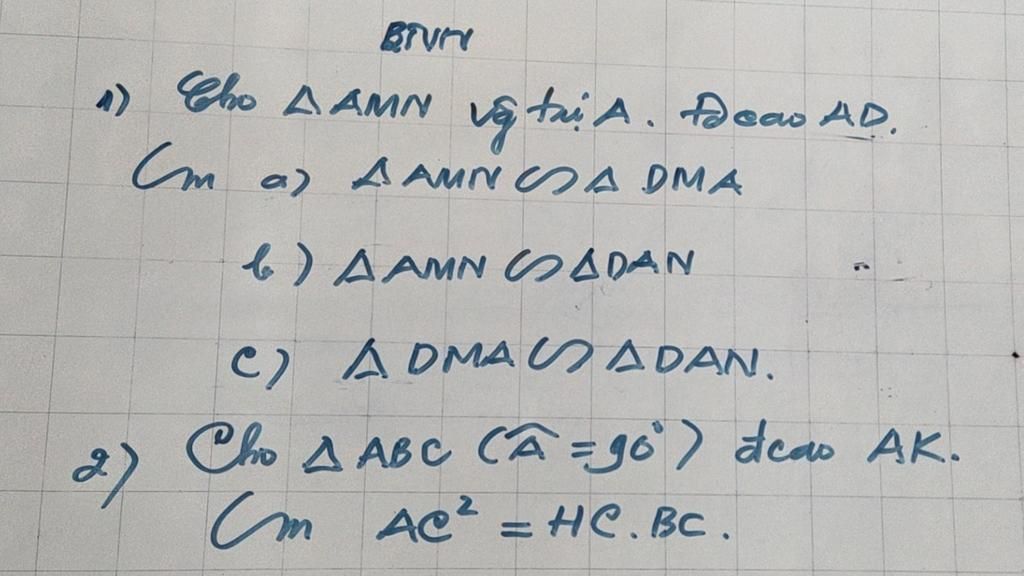 BTVN
1) Cho Δ AMN vg tại A. Đ cao AD.
Cm a) Δ AMN ∽ Δ DMA
b) Δ AMN ∽ Δ DAN
c) Δ DMA ∽ Δ DAN.
2) Cho Δ ABC (Â = 90°) đcao AK.
Cm AC² = HC.BC.